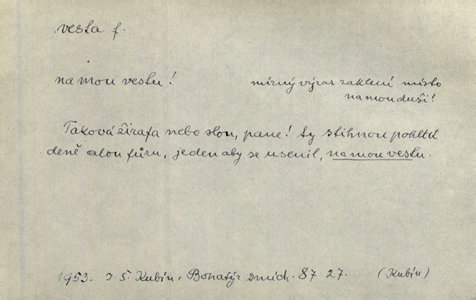 vesta f.
na mou vestu! mírný výraz zaklení místo
na mou duši!
Taková žirafa nebo slon, pane! Ty stihnou pohltit
denně alou fůru, jeden aby se usenil, na mou vestu.
1953. J. Š. Kubín, Bohatýr. smích. 87 27. (Kubín)